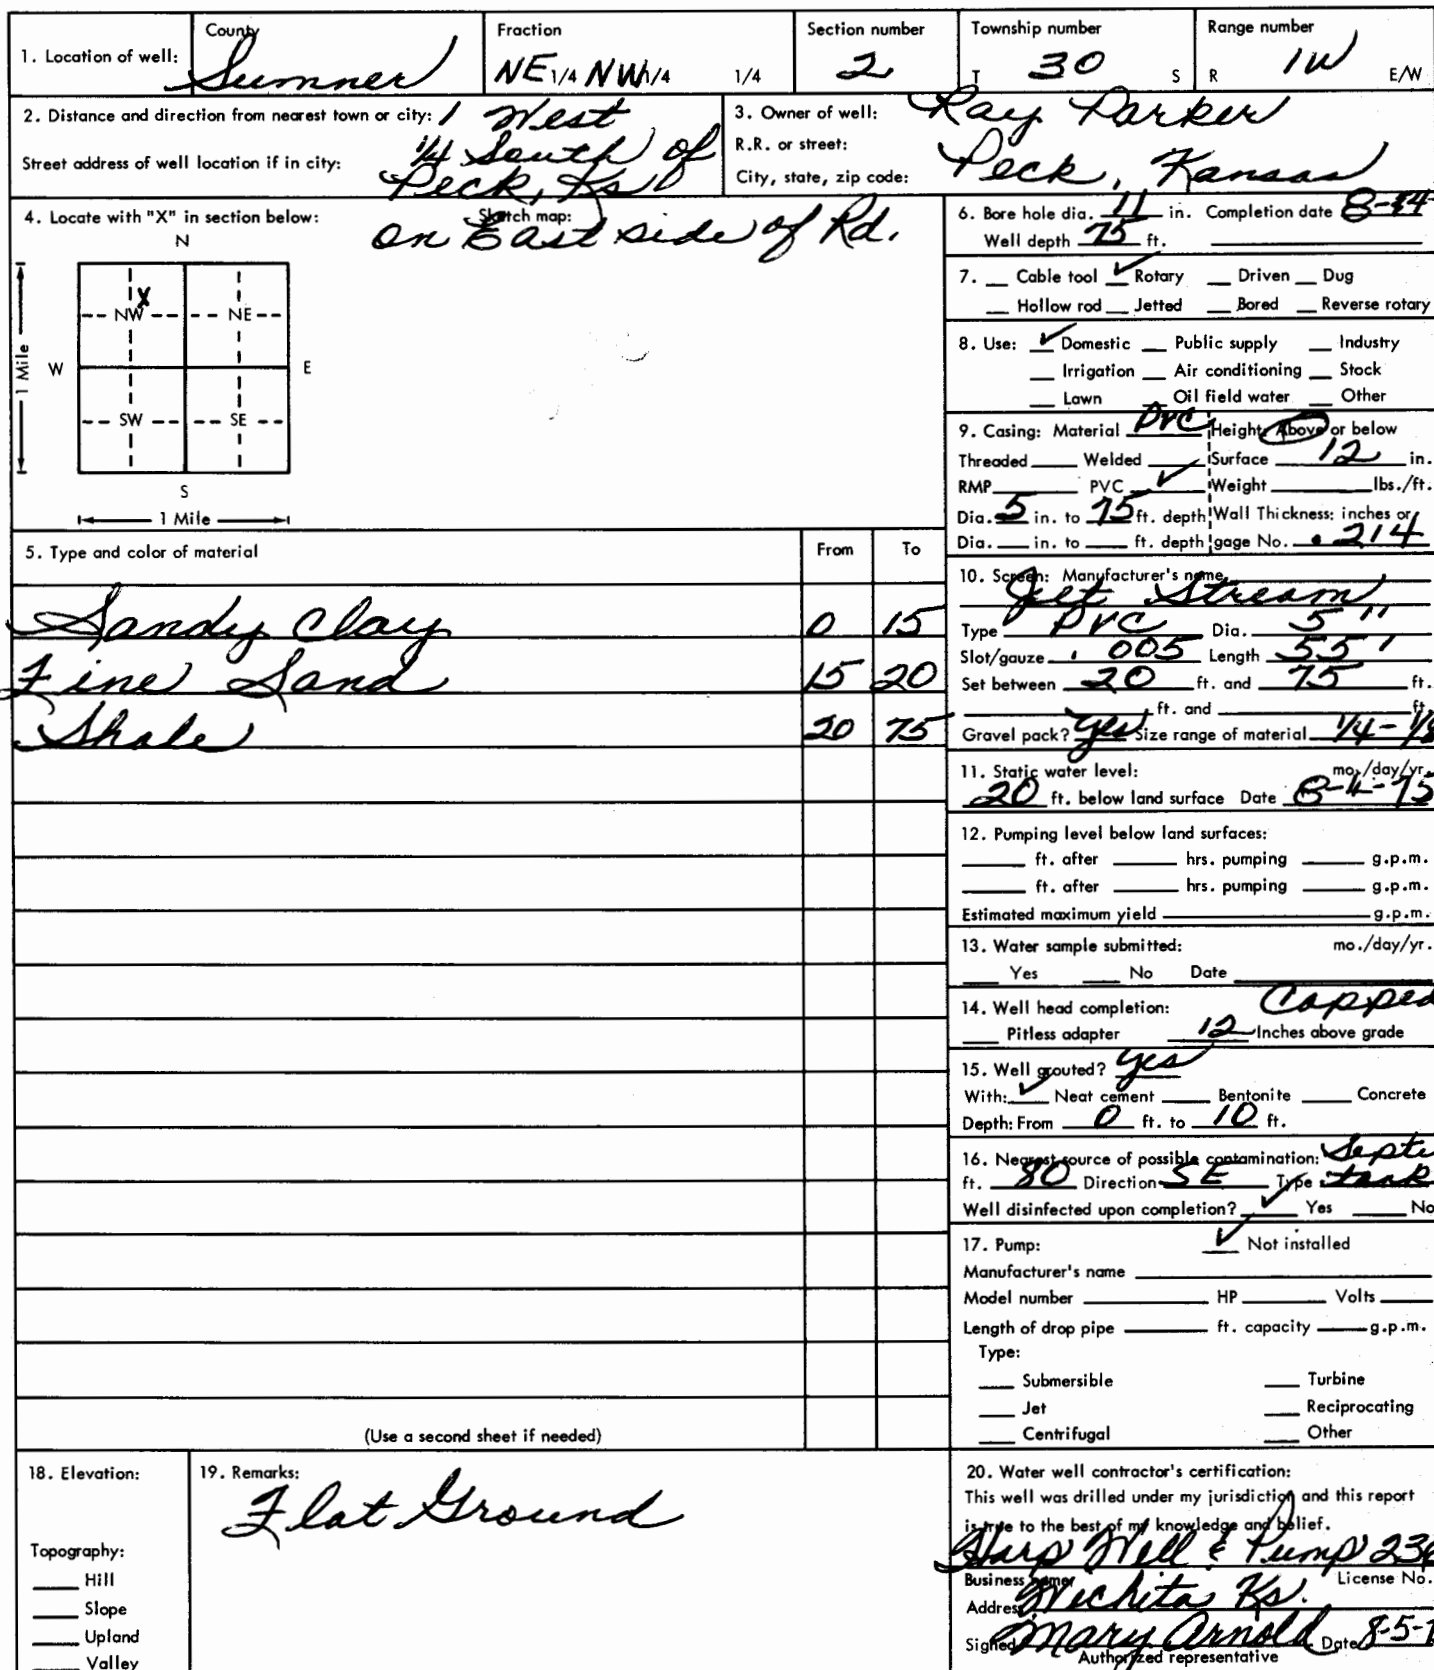 1. Location of well: County Sumner Fraction NE 1/4 NW 1/4 1/4 Section number 2 Township number T 30 S Range number R 1W E/W
2. Distance and direction from nearest town or city: 1 West
1/4 South of
Street address of well location if in city: Peck, Ks
3. Owner of well: Ray Parker
R.R. or street:
City, state, zip code: Peck, Kansas
4. Locate with "X" in section below: Sketch map:
on East side of Rd.
N
X
NW NE
W E
1 Mile
SW SE
S
1 Mile
5. Type and color of material From To
Sandy Clay 0 15
Fine Sand 15 20
Shale 20 75
(Use a second sheet if needed)
6. Bore hole dia. 11 in. Completion date
Well depth 75 ft.
7. Cable tool ✓ Rotary Driven Dug
Hollow rod Jetted Bored Reverse rotary
8. Use: ✓ Domestic Public supply Industry
Irrigation Air conditioning Stock
Lawn Oil field water Other
9. Casing: Material PVC Height: Above or below
Threaded Welded Surface 12 in.
RMP PVC ✓ Weight lbs./ft.
Dia. 5 in. to 75 ft. depth Wall Thickness: inches or
Dia. in. to ft. depth gage No. .214
10. Screen: Manufacturer's name
Jet Stream
Type PVC Dia. 5"
Slot/gauze .005 Length 55'
Set between 20 ft. and 75 ft.
ft. and ft.
Gravel pack? Yes Size range of material 1/4-1/8
11. Static water level: mo./day/yr.
20 ft. below land surface Date 8-4-75
12. Pumping level below land surfaces:
ft. after hrs. pumping g.p.m.
ft. after hrs. pumping g.p.m.
Estimated maximum yield g.p.m.
13. Water sample submitted: mo./day/yr.
Yes No Date
14. Well head completion: Capped
Pitless adapter 12 Inches above grade
15. Well grouted? Yes
With: ✓ Neat cement Bentonite Concrete
Depth: From 0 ft. to 10 ft.
16. Nearest source of possible contamination: Septi
ft. 80 Direction SE Type tank
Well disinfected upon completion? ✓ Yes No
17. Pump: ✓ Not installed
Manufacturer's name
Model number HP Volts
Length of drop pipe ft. capacity g.p.m.
Type:
Submersible Turbine
Jet Reciprocating
Centrifugal Other
18. Elevation:
Topography:
Hill
Slope
Upland
Valley
19. Remarks:
Flat Ground
20. Water well contractor's certification:
This well was drilled under my jurisdiction and this report
is true to the best of my knowledge and belief.
Harp Well & Pump 236
Business name License No.
Address Wichita Ks.
Signed Mary Arnold Date 8-5-
Authorized representative